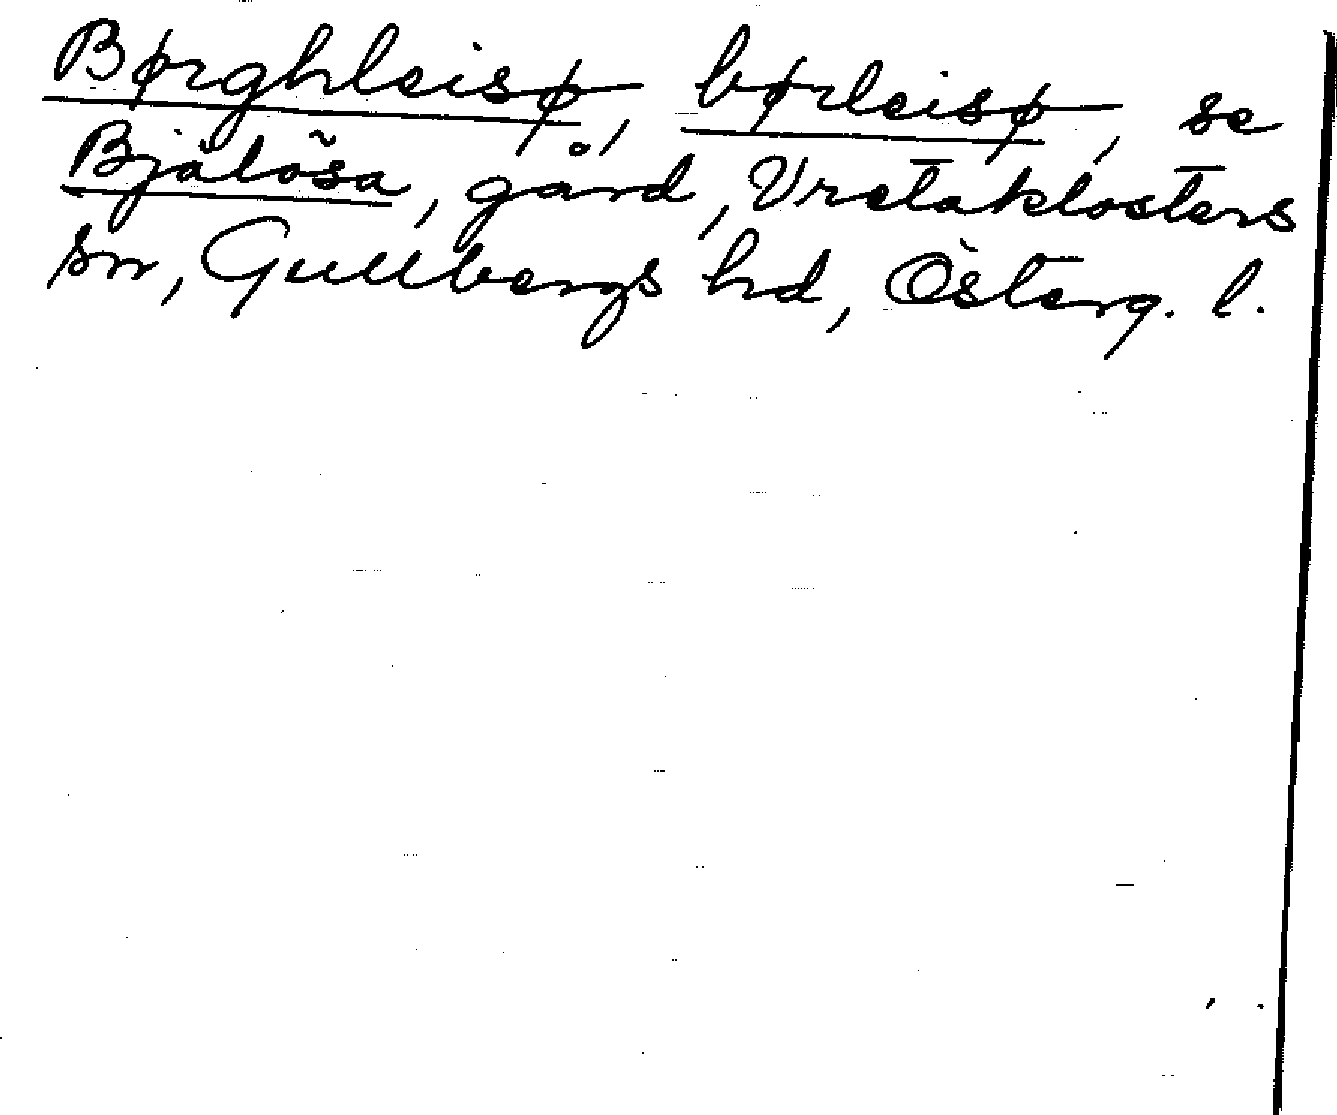 Børghleisø, børleisø, se
Bjälösa, gård, Vretaklosters
sn, Gullbergs hd, Österg. l.